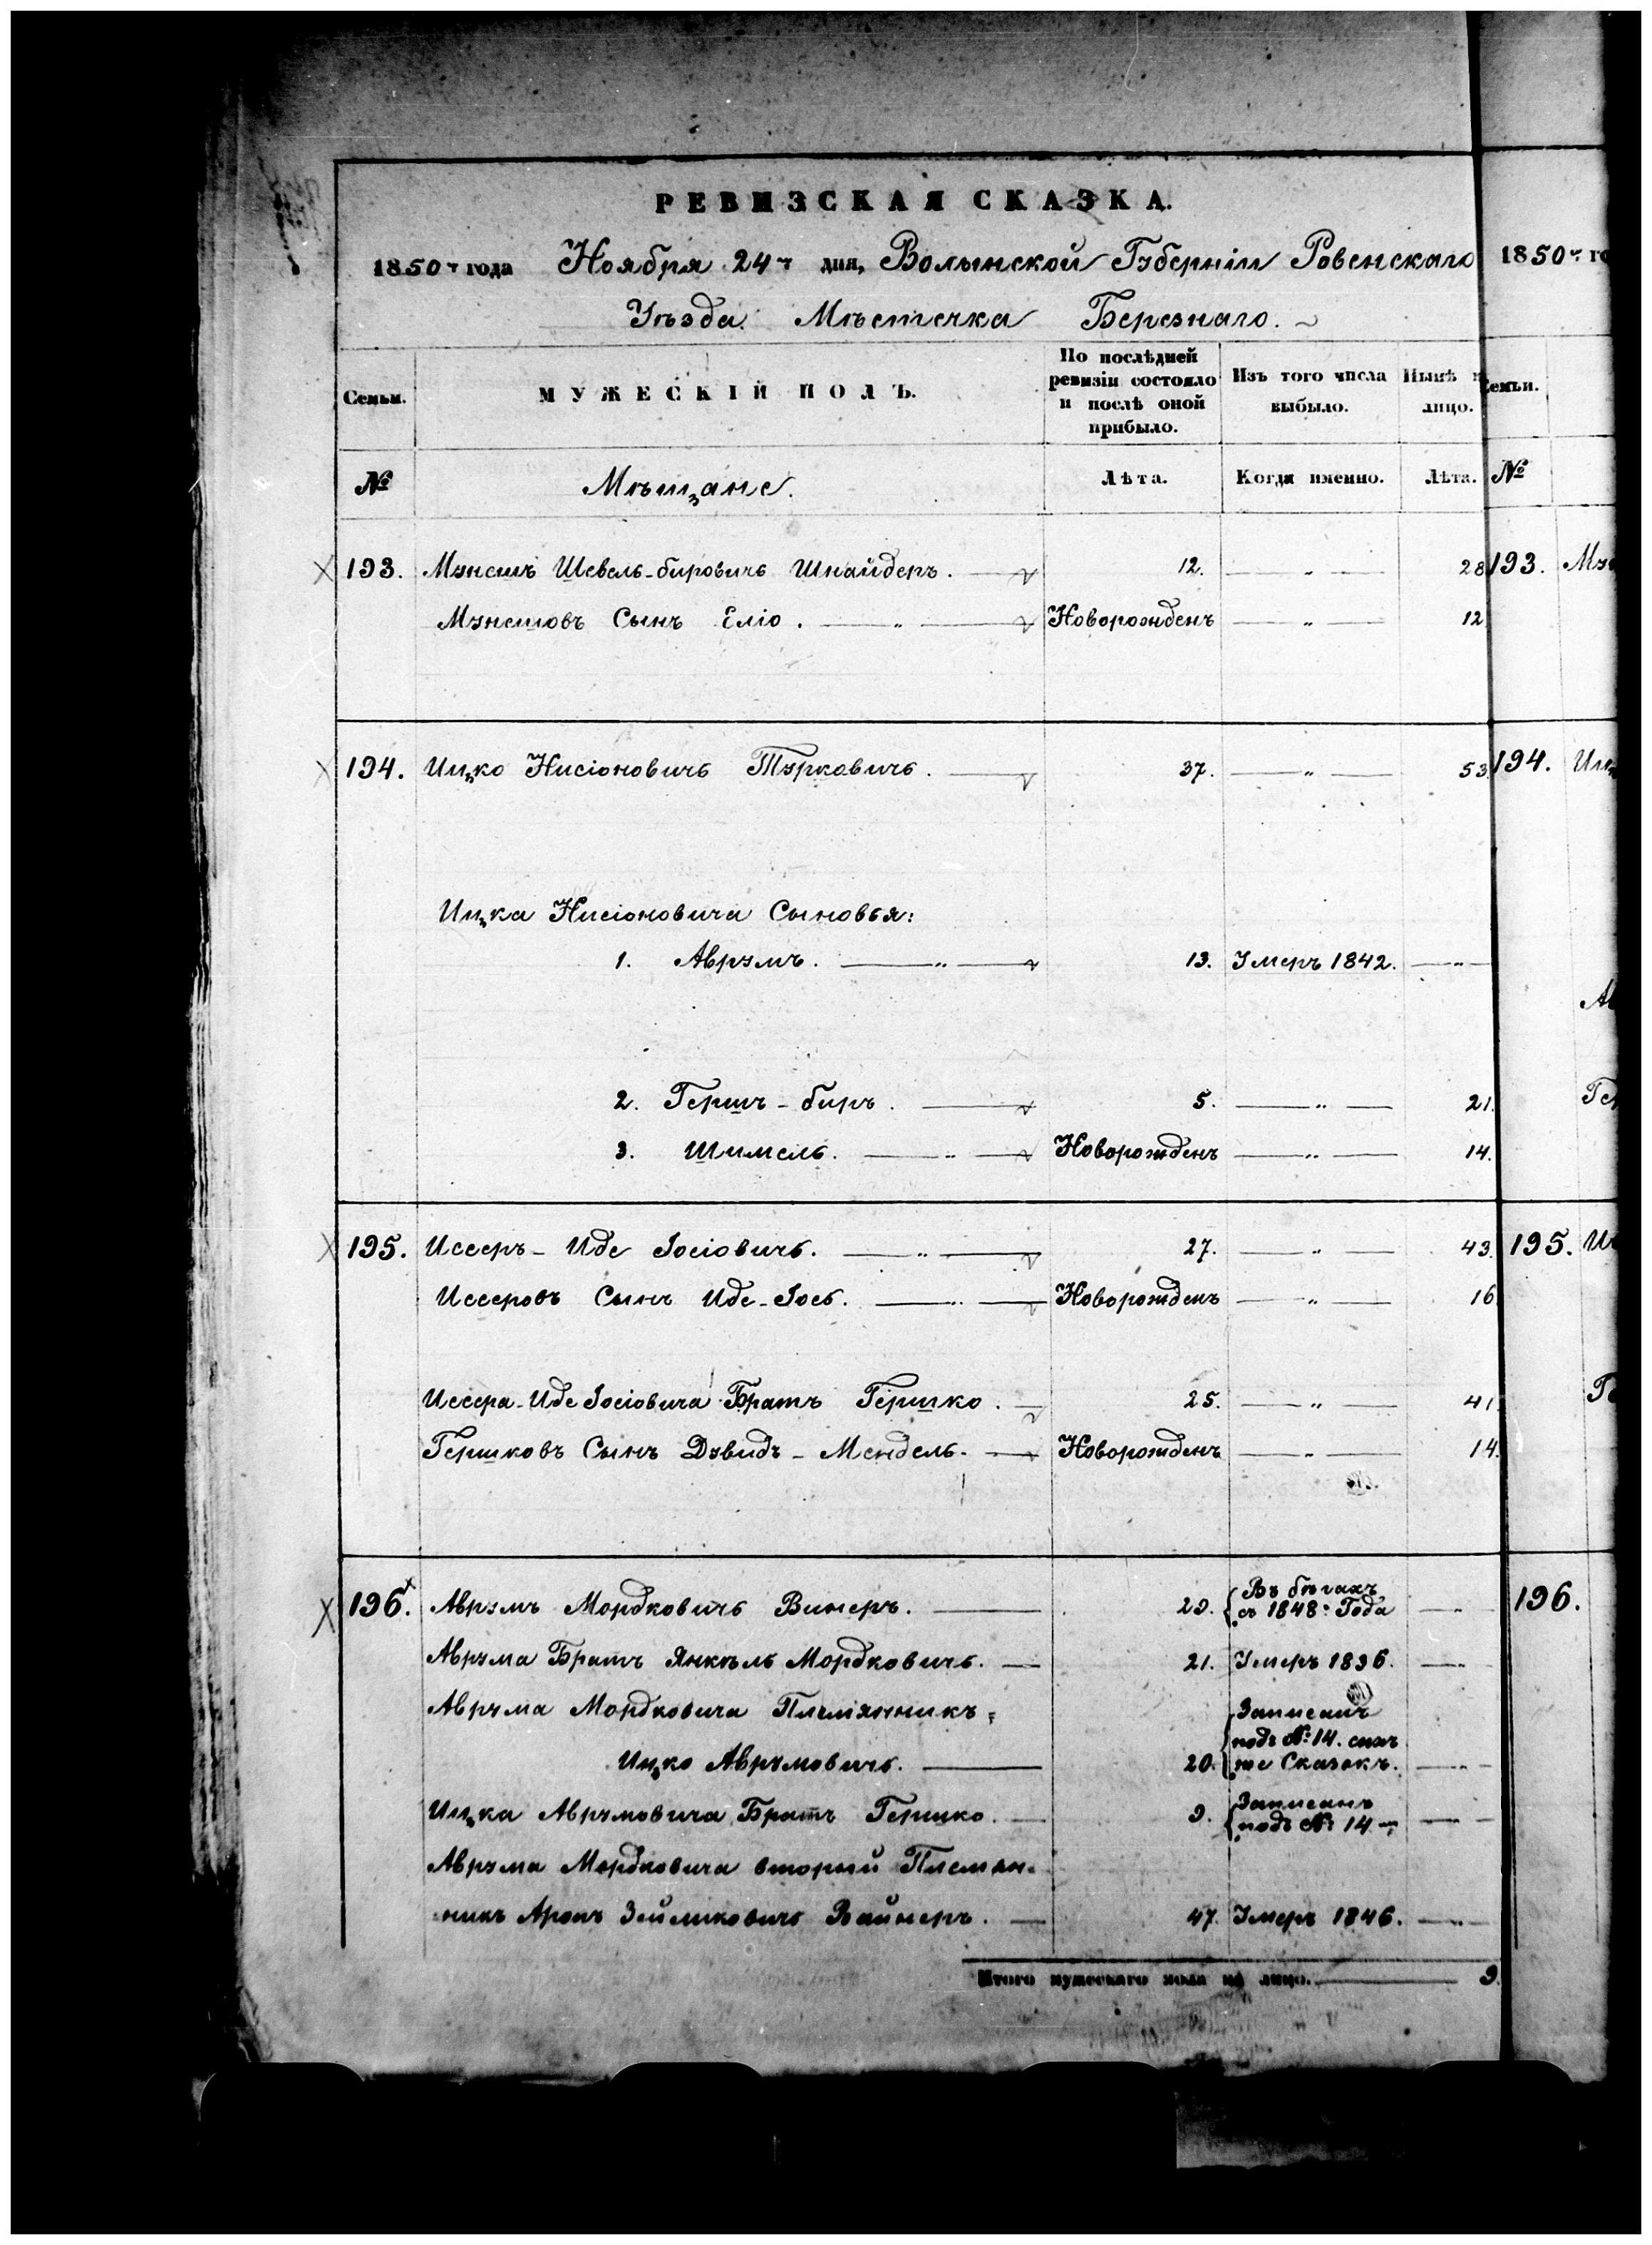 РЕВИЗСКАЯ СКАЗКА.
1850 г года Ноября 24 г дня, Волынской Губерніи Ровенскаго
Уѣзда Мѣстечка Березнаго.
Семьи. МУЖЕСКІЙ ПОЛЪ. По послѣдней ревизіи состояло и послѣ оной прибыло. Изъ того числа выбыло. Нынѣ н лицо.
№ Мѣщане. Лѣта. Когда именно. Лѣта.
193. Мунешъ Шевель-бировичъ Шнайдеръ. 12. — " — 28
Мунешовъ Сынъ Еліо. — " — Новорожденъ — " — 12
194. Ицко Нисіоновичъ Туркевичъ. 37. — " — 53
Ицка Нисіоновича Сыновья:
1. Аврумъ. — " — 13. Умеръ 1842. — " —
2. Гершъ-биръ. 5. — " — 21.
3. Шимель. — " — Новорожденъ — " — 14.
195. Иссеръ-Иде Іосіовичъ. — " — 27. — " — 43.
Иссеровъ Сынъ Иде-Іось. — " — Новорожденъ — " — 16
Иссера-Иде Іосіовича Братъ Гершко. 25. — " — 41
Гершковъ Сынъ Дувидъ-Мендель. Новорожденъ — " — 14.
196. Аврумъ Мордковичъ Винеръ. 29. Въ бѣгахъ съ 1848 Года — " —
Аврума Братъ Янкѣль Мордковичъ. 21. Умеръ 1836. — " —
Аврума Мордковича Племянникъ
Ицко Аврумовичъ. 20. Записанъ подъ № 14. сихъ же Сказокъ. — " —
Ицка Аврумовича Братъ Гершко. 9. Записанъ подъ № 14 — " —
Аврума Мордковича вторый Племян-
никъ Аронъ Зейликовичъ Вайнеръ. 47. Умеръ 1846. — " —
Итого мужескаго пола на лицо. 9.
1850 г
Семьи.
№
193.
194.
195.
196.